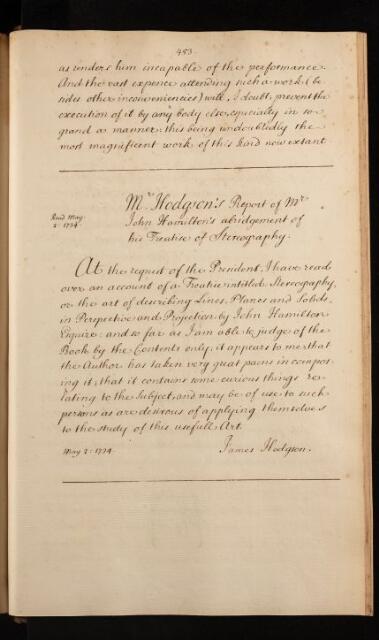 453
as renders him incapable of the performance.
And the vast expence attending such a work (be
sides other inconveniencies) will, I doubt, prevent the
execution of it by any body else, especially in so
grand a manner: this being undoubtedly the
most magnificent work of this kind now extant
Mr Hodgson's Report of Mr
John Hamilton's abridgement of
his Treatise of Stereography.
Read May
2. 1734.
At the request of the President, I have read
over an account of a Treatise intitled Stereography,
or the art of describing Lines, Planes and Solids,
in Perspective and Projection by John Hamilton
Esquire: and so far as I am able to judge of the
Book by the Contents only; it appears to me that
the Author has taken very great pains in compos
ing it; that it contains some curious things re
lating to the Subject, and may be of use to such
persons as are desirous of applying themselves
to the study of this usefull Art.
May 2: 1734.
James Hodgson.